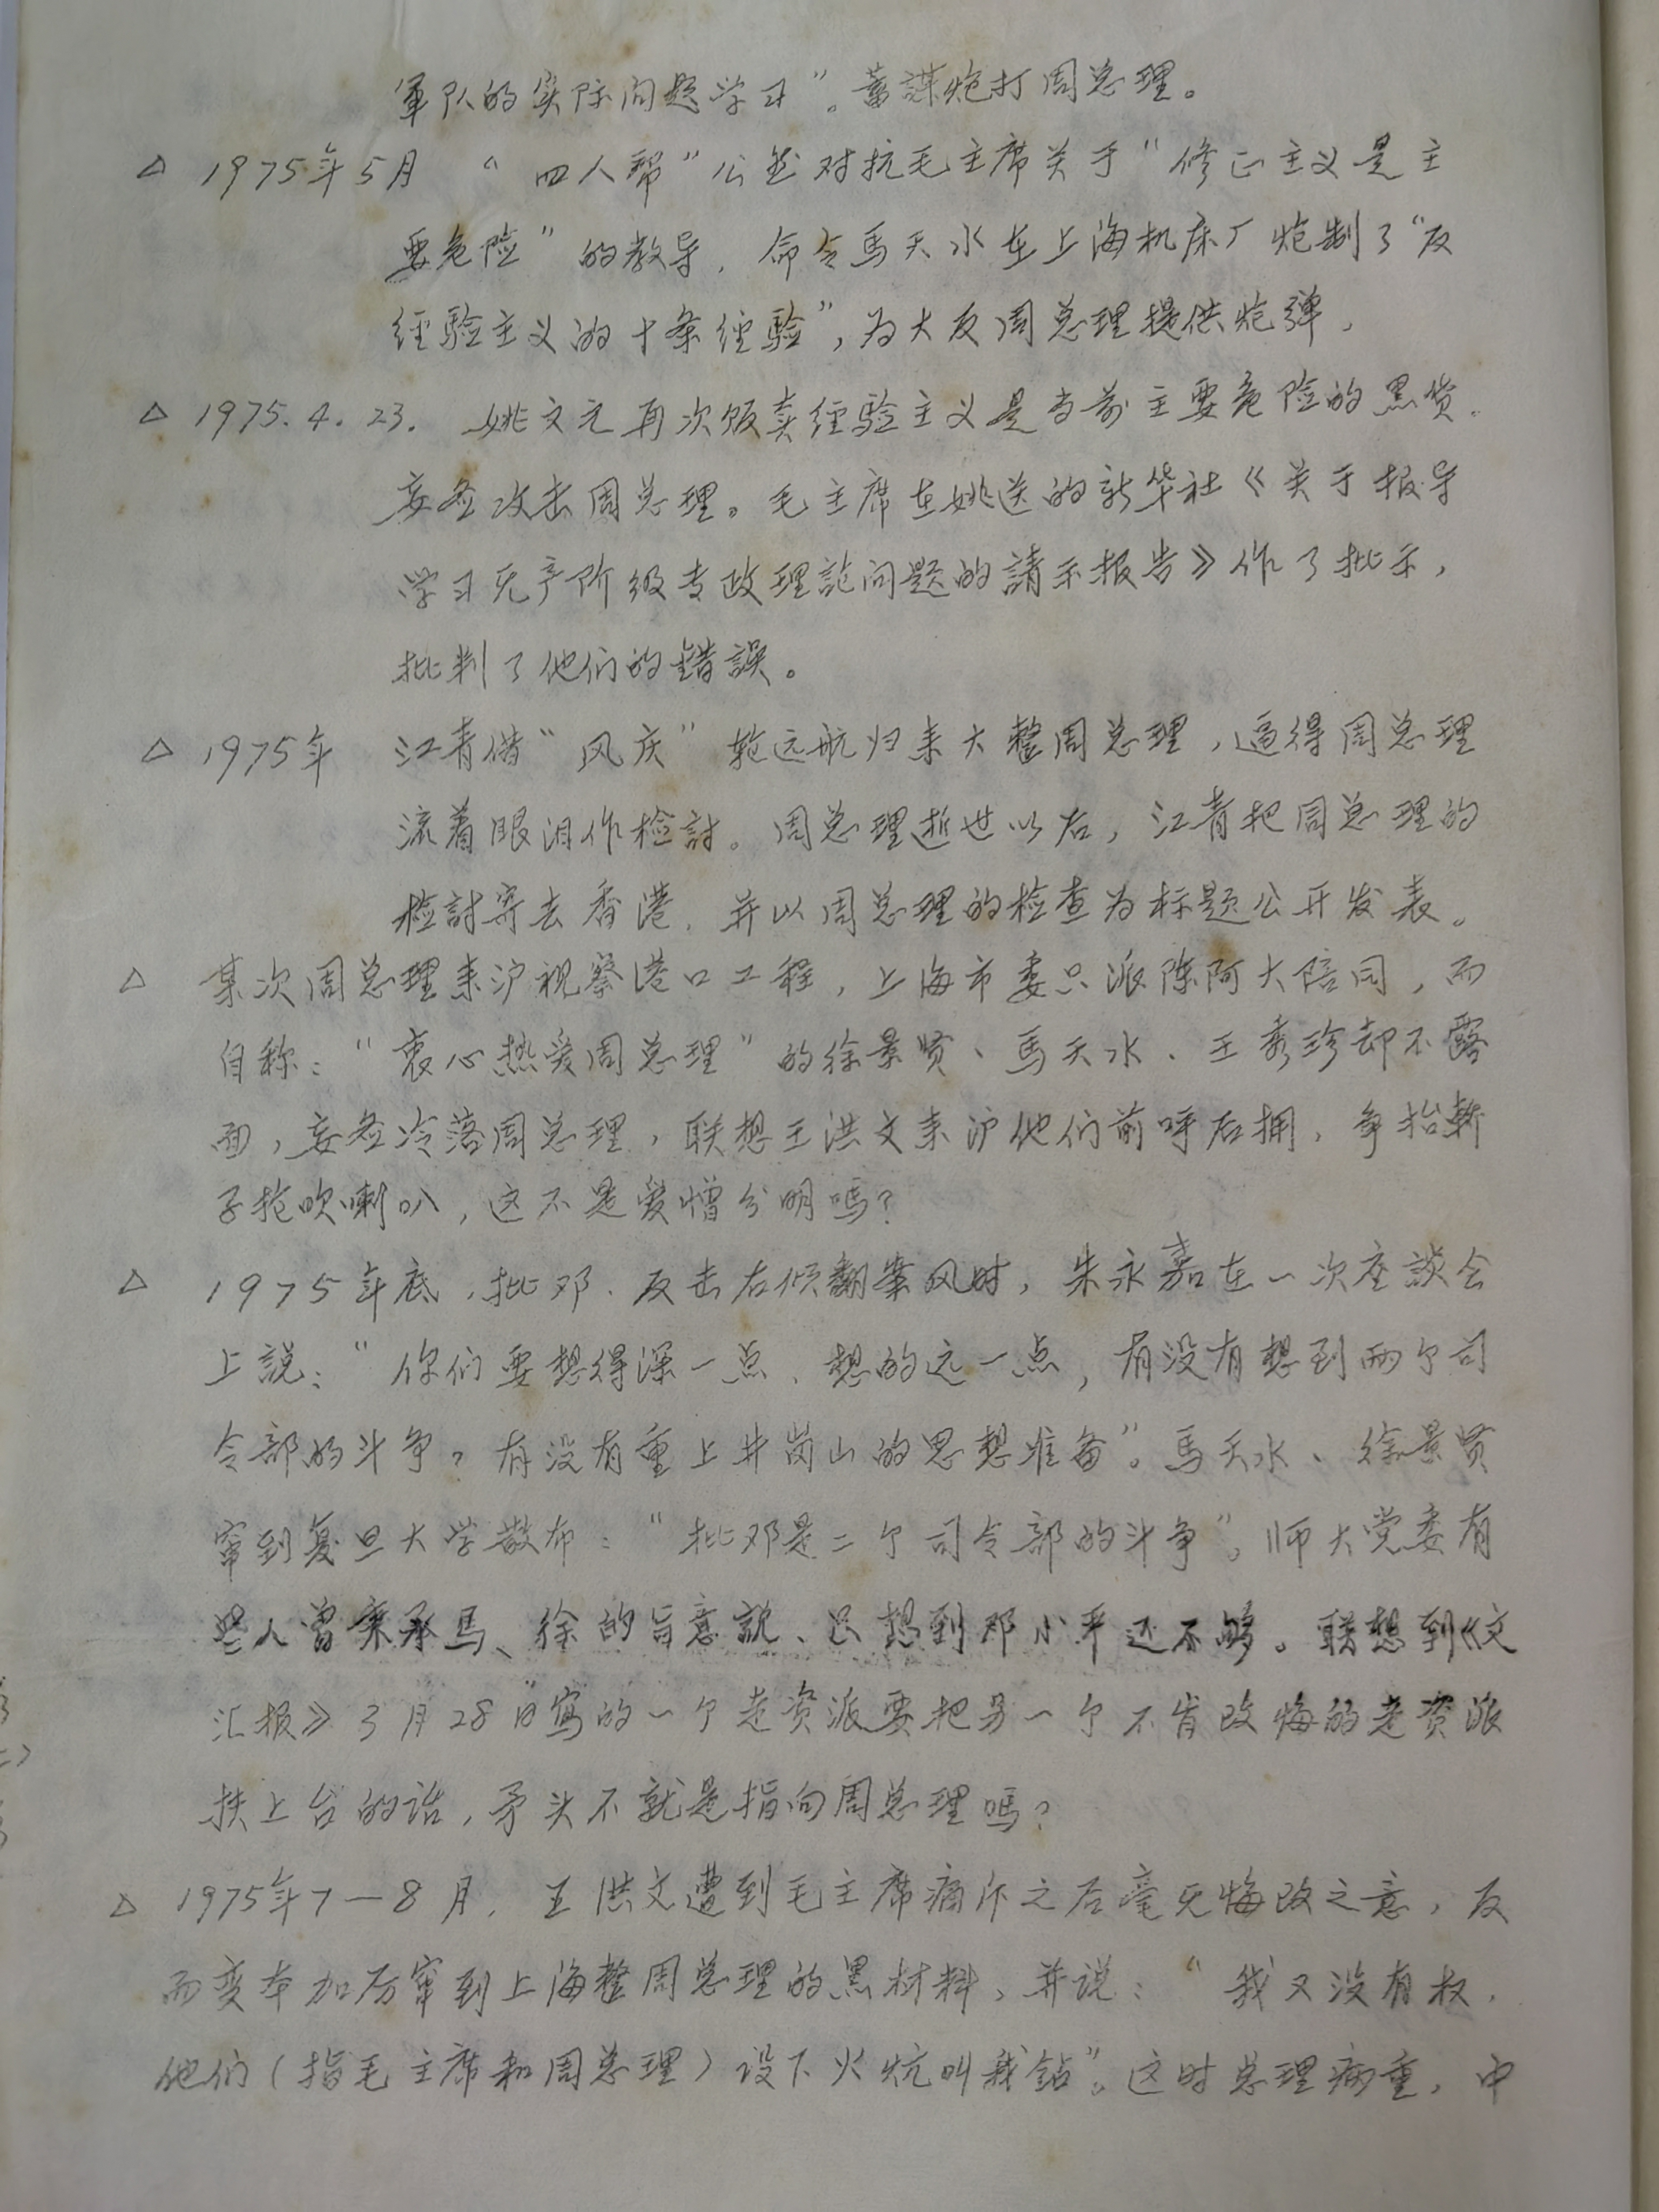 軍队的实际问题学习”。蓄謀炮打周总理。
△ 1975年5月 “四人帮”公然对抗毛主席关于“修正主义是主
要危险”的教导，命令馬天水在上海机床厂炮制了“反
经验主义的十条经验”，为大反周总理提供炮弹，
△ 1975.4.23. 姚文元再次贩卖经验主义是当前主要危险的黑货。
妄图攻击周总理。毛主席在姚送的新华社《关于报导
学习无产阶级专政理論问题的請示报告》作了批示，
批判了他们的錯誤。
△ 1975年 江青借“风庆”轮远航归来大整周总理，逼得周总理
流着眼泪作检討。周总理逝世以后，江青把周总理的
检討寄去香港，并以周总理的检查为标题公开发表。
△ 某次周总理来沪视察港口工程，上海市委只派陈阿大陪同，而
自称：“衷心热爱周总理”的徐景贤、馬天水、王秀珍却不露
面，妄图冷落周总理，联想王洪文来沪他们前呼后拥，争抬轿
子抢吹喇叭，这不是爱憎分明嗎？
△ 1975年底，批邓、反击右倾翻案风时，朱永嘉在一次座談会
上説：“你们要想得深一点、想的远一点，有没有想到两个司
令部的斗争，有没有重上井岗山的思想准备”。馬天水、徐景贤
窜到复旦大学散布：“批邓是二个司令部的斗争”。师大党委有
些人曾秉承馬、徐的旨意説、只想到邓小平还不够。联想到《文
汇报》3月28日写的一个走资派要把另一个不肯改悔的走资派
扶上台的话，矛头不就是指向周总理嗎？
△ 1975年7—8月，王洪文遭到毛主席痛斥之后毫无悔改之意，反
而变本加厉窜到上海整周总理的黑材料，并说：“我又没有权，
他们（指毛主席和周总理）设下火坑叫我鈷”。这时总理病重，中